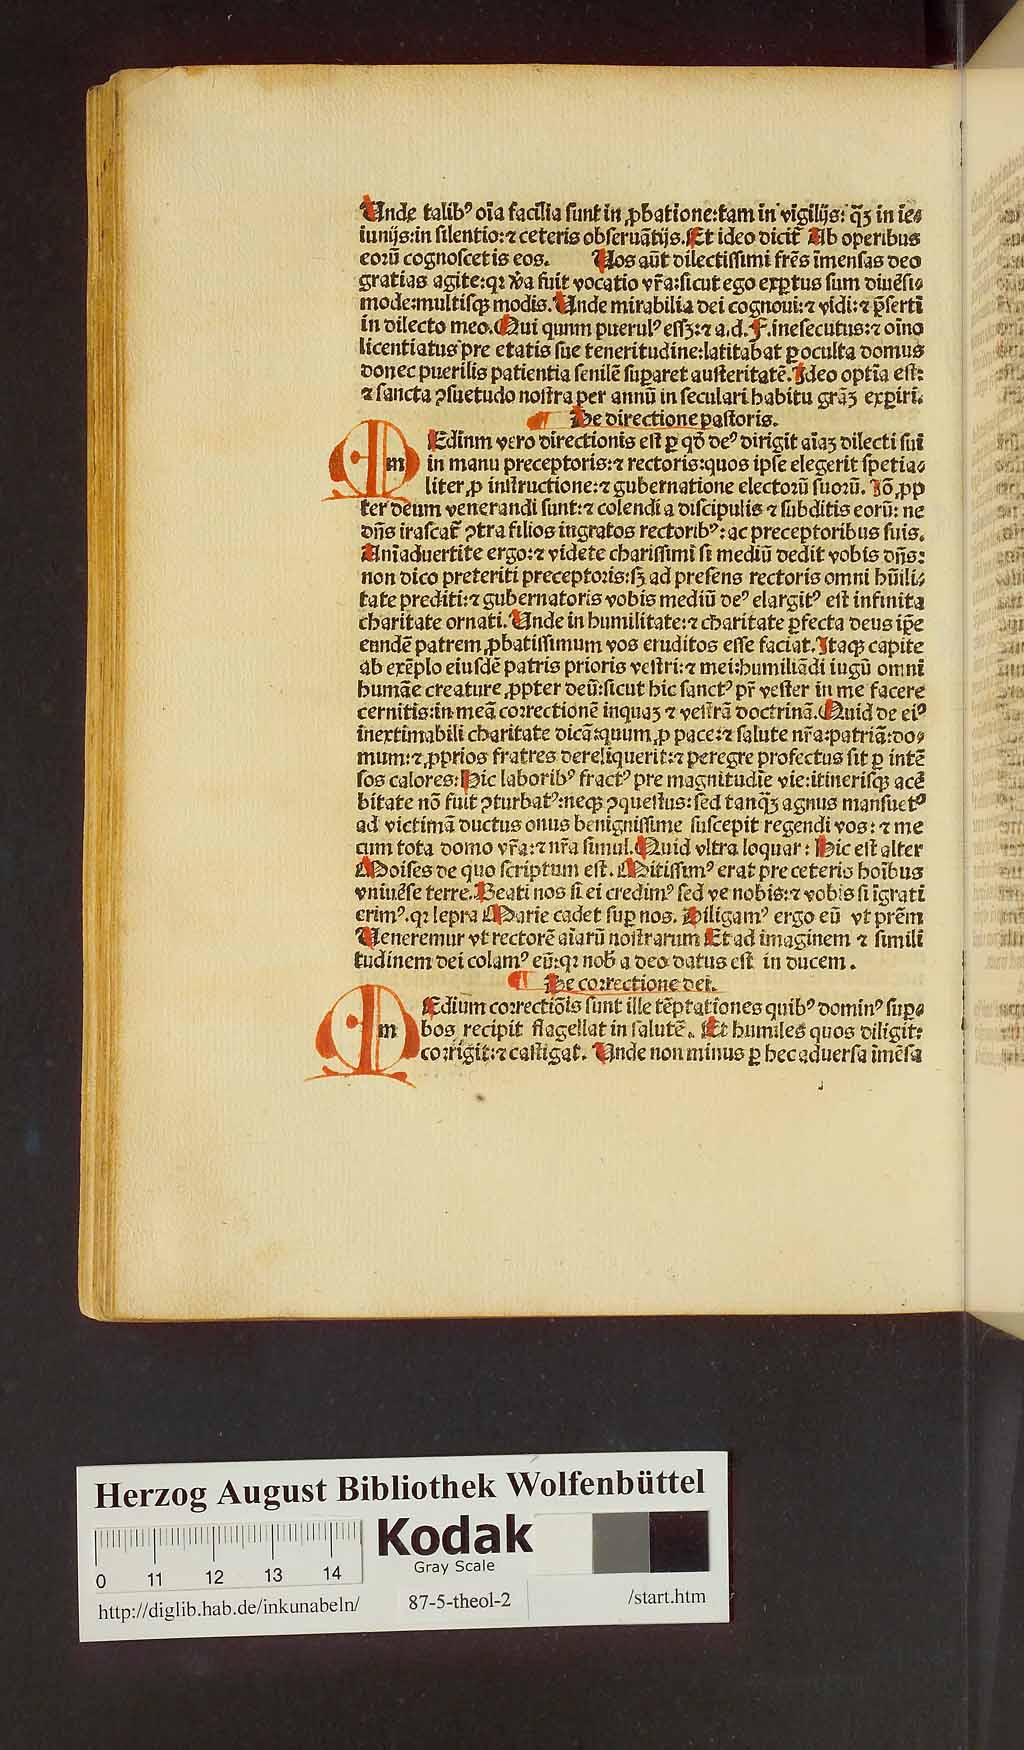 Unde talibꝰ oĩa facilia sunt in ꝓbatione: tam in vigilijs: qȝ̃ in ie⸗
iunijs: in silentio: ⁊ ceteris obseruãtijs. Et ideo dicit̃ Ab operibus
eorũ cognoscetis eos. Uos aũt dilectissimi frẽs ĩmensas deo
gratias agite: qꝛ v̾a fuit vocatio vr̃a: sicut ego exꝑtus sum diuẽsi⸗
mode: multisqꝫ modis. Unde mirabilia dei cognoui: ⁊ vidi: ⁊ p̃sertĩ
in dilecto meo. Qui qunm puerulꝰ essȝ: ⁊ a.d. F. insecutus: ⁊ oĩno
licentiatus pre etatis sue teneritudine: latitabat ꝑ occulta domus
donec puerilis patientia senilẽ suꝑaret austeritatẽ. Ideo optĩa est:
⁊ sancta ꝯsuetudo nostra per annũ in seculari habitu grãȝ exꝑiri.
De directione pastoris.
m Edinm vero directionis est ꝑ qđ deꝰ dirigit aĩaȝ dilecti sui
in manu preceptoris: ⁊ rectoris: quos ipse elegerit spetia⸗
liter ꝓ instructione: ⁊ gubernatione electorũ suorũ. Iõ ꝓp
ter deum venerandi sunt: ⁊ colendi a discipulis ⁊ subditis eorũ: ne
dñs irascat̃ ꝯtra filios ingratos rectoribꝰ: ac preceptoribus suis.
Anĩaduertite ergo: ⁊ videte charissimi si mediũ dedit vobis dñs:
non dico preteriti preceptoris: sȝ ad presens rectoris omni hũili⸗
tate prediti: ⁊ gubernatoris vobis mediũ deꝰ elargitꝰ est infinita
charitate ornati. Unde in humilitate: ⁊ charitate ꝑfecta deus ip̃e
enndẽ patrem ꝓbatissimum vos eruditos esse faciat. Itaqꝫ capite
ab exẽplo eiusdẽ patris prioris vestri: ⁊ mei: humiliãdi iugũ omni
humãe creature ꝓpter deũ: sicut hic sanctꝰ pr̃ vester in me facere
cernitis: in meã correctionẽ inquaȝ ⁊ vestrã doctrinã. Quid de eiꝰ
inextimabili charitate dicã: quum ꝓ pace: ⁊ salute nr̃a: patriã: do⸗
mum: ⁊ ꝓprios fratres dereliquerit: ⁊ peregre profectus sit ꝑ intẽ
sos calores: Hic laboribꝰ fractꝰ pre magnitudĩe vie: itinerisqꝫ acẽ
bitate nõ fuit ꝯturbatꝰ: neqꝫ ꝯquestus: sed tanqȝ̃ agnus mansuetꝰ
ad victimã ductus onus benignissime suscepit regendi vos: ⁊ me
cum tota domo vr̃a: ⁊ nr̃a simul. Quid vltra loquar: Hic est alter
Moises de quo scriptum est. Mitissimꝰ erat pre ceteris hoĩbus
vniuẽse terre. Beati nos si ei credimꝰ sed ve nobis: ⁊ vobis si ĩgrati
erimꝰ. qꝛ lepra Marie cadet suꝑ nos. Diligamꝰ ergo eũ vt pr̃em
Ueneremur vt rectorẽ aĩarũ nostrarum Et ad imaginem ⁊ simili
tudinem dei colamꝰ eũ: qꝛ nob̃ a deo datus est in ducem.
De correctione dei.
m Edium correctiõis sunt ille tẽptationes quibꝰ dominꝰ suꝑ⸗
bos recipit flagellat in salutẽ. Et humiles quos diligit:
corrigit: ⁊ castigat. Unde non minus ꝑ hec aduersa imẽsa
Herzog August Bibliothek Wolfenbüttel
Kodak
Gray Scale
0 11 12 13 14
http://diglib.hab.de/inkunabeln/ 87-5-theol-2 /start.htm